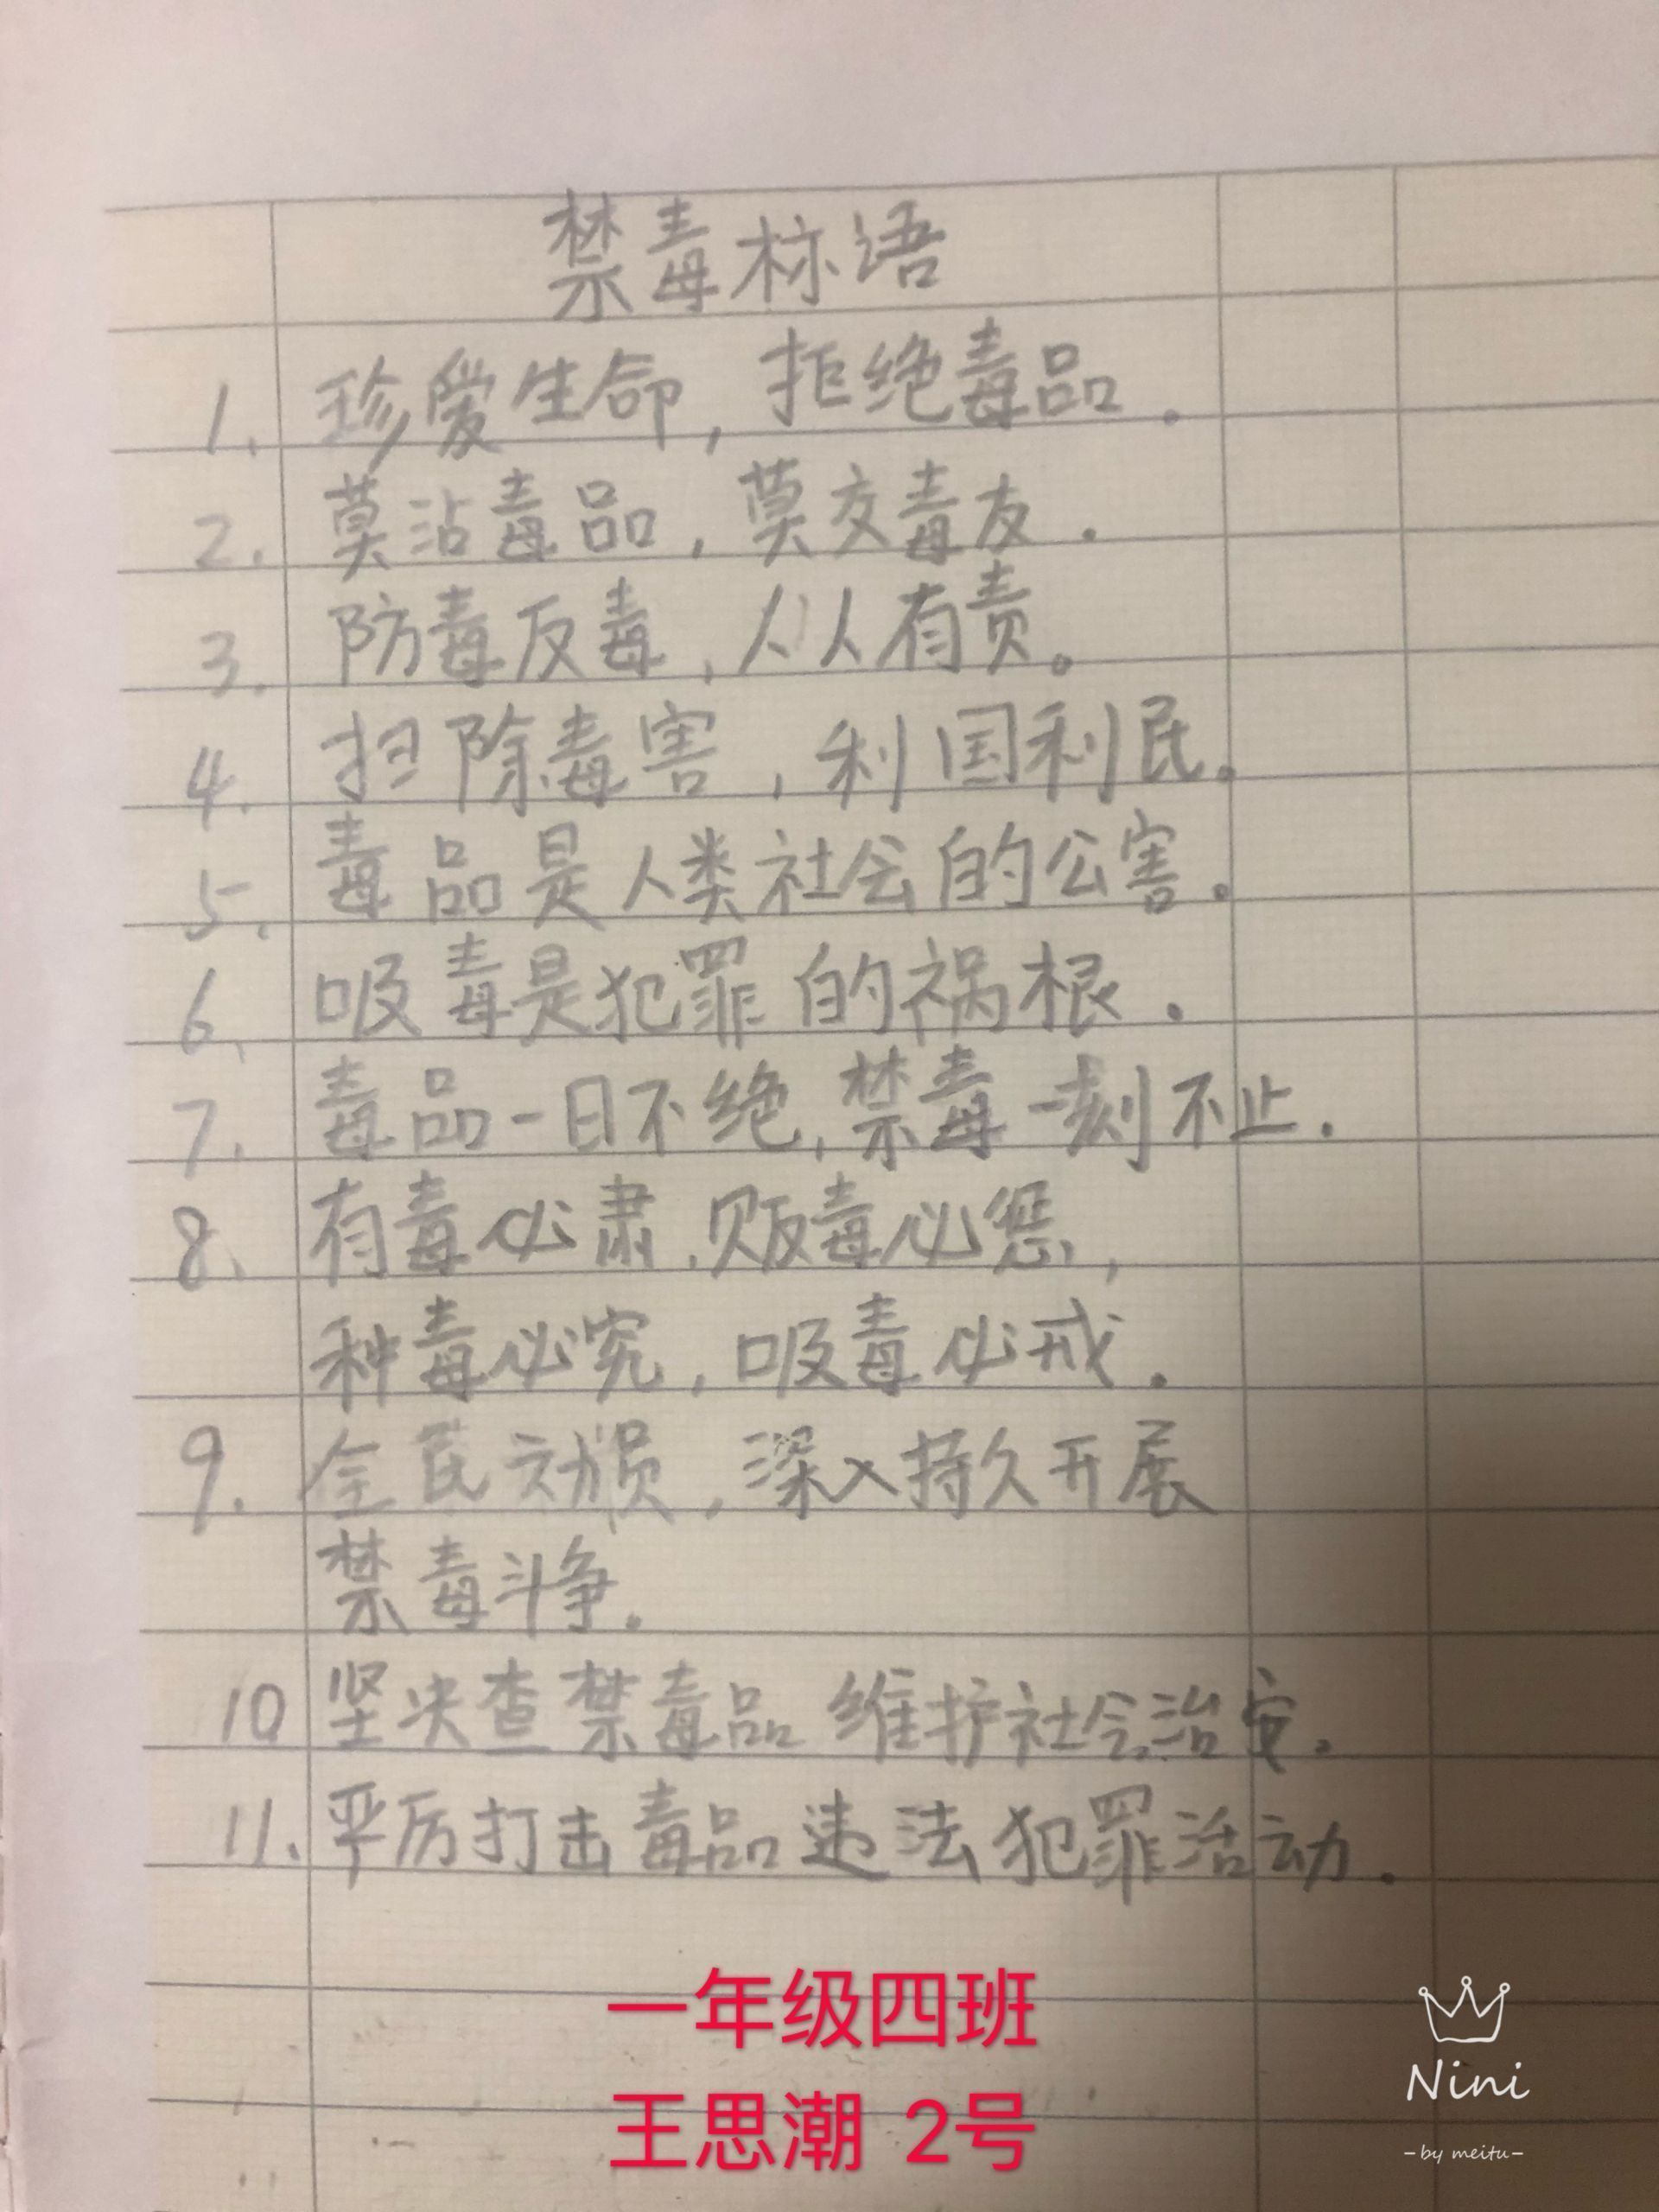 禁毒标语
1. 珍爱生命，拒绝毒品。
2. 莫沾毒品，莫交毒友.
3. 防毒反毒，人人有责。
4. 扫除毒害，利国利民。
5. 毒品是人类社会的公害。
6、吸毒是犯罪的祸根.
7. 毒品一日不绝，禁毒一刻不止.
8、有毒必肃，贩毒必惩，
种毒必究，吸毒必戒.
9. 全民动员，深入持久开展
禁毒斗争.
10 坚决查禁毒品 维护社会治安.
11. 严厉打击毒品违法犯罪活动.
一年级四班
王思潮 2号
Nini
-by meitu-